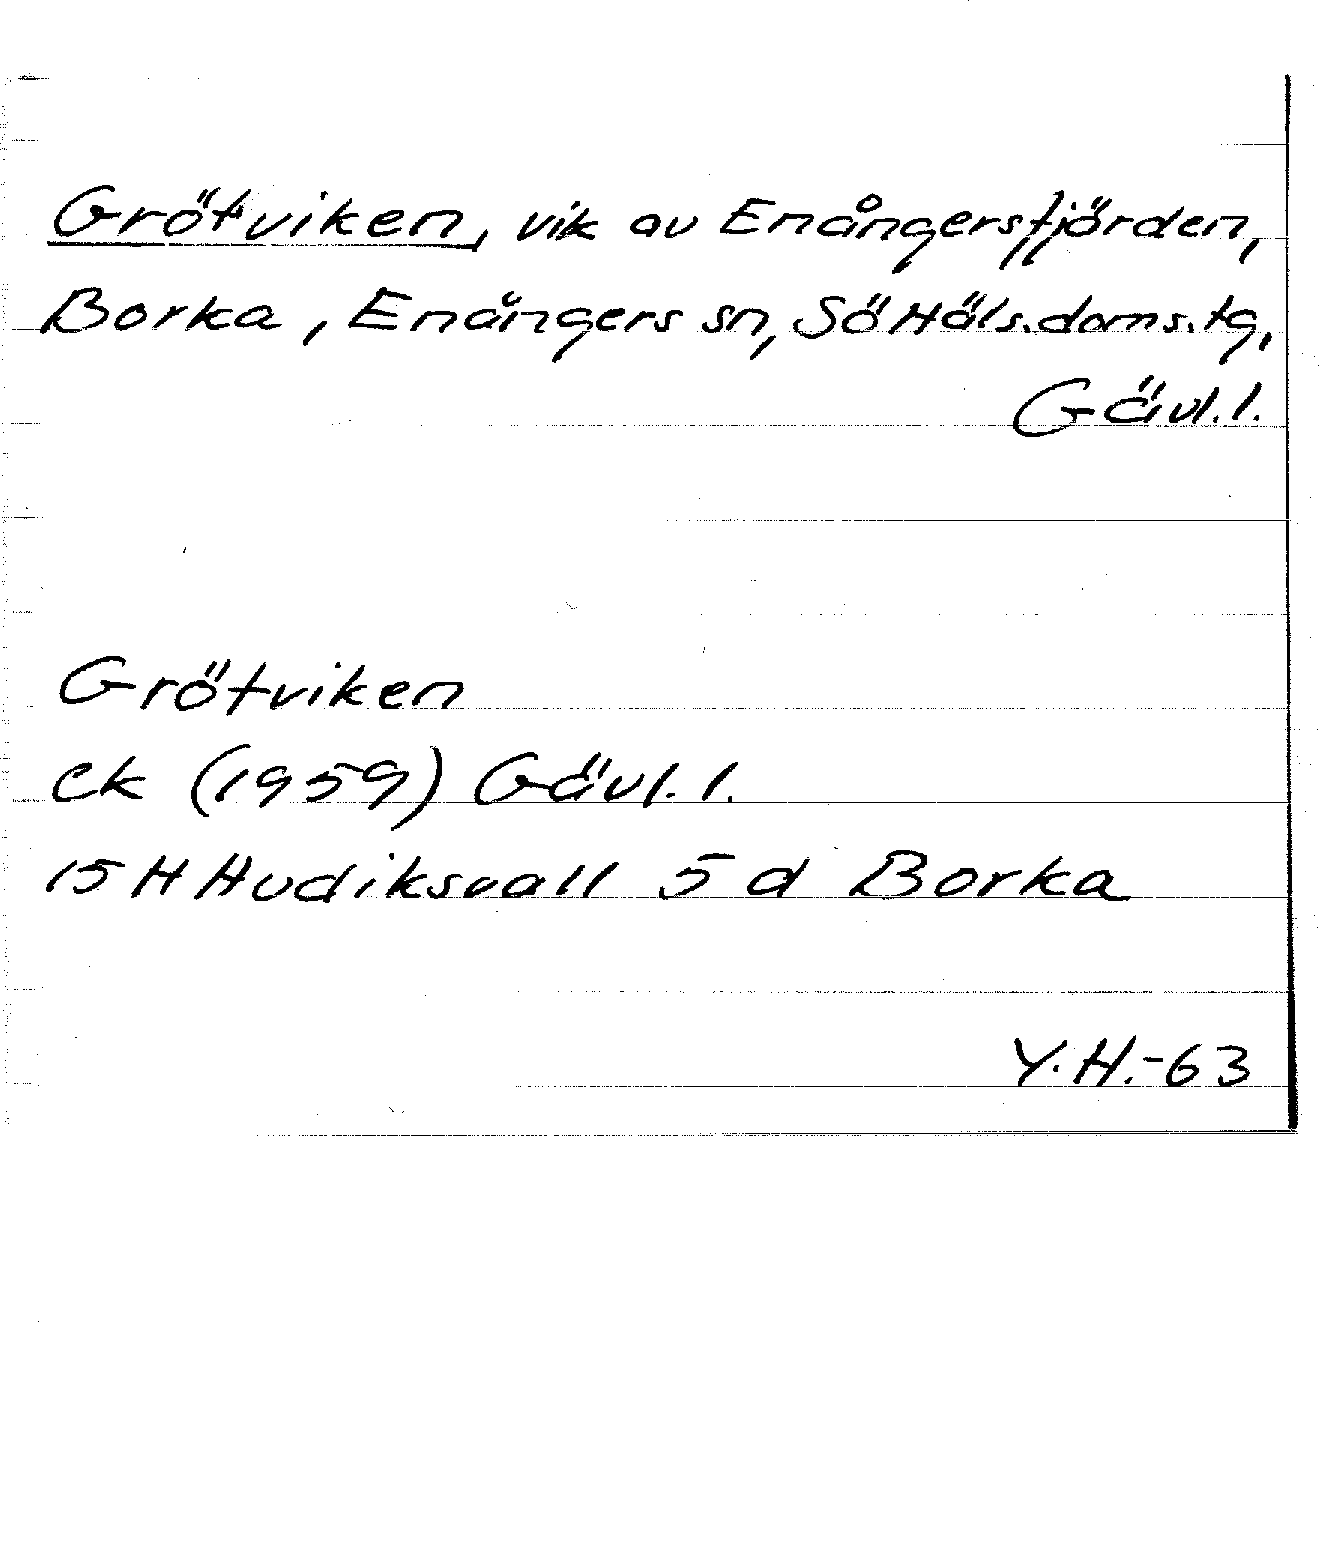 Grötviken, vik av Enångersfjärden,
Borka, Enångers sn, Sö Häls. doms. tg,
Gävl. l.
Grötviken
ek (1959) Gävl. l.
15 H Hudiksvall 5 d Borka
Y. H.-63